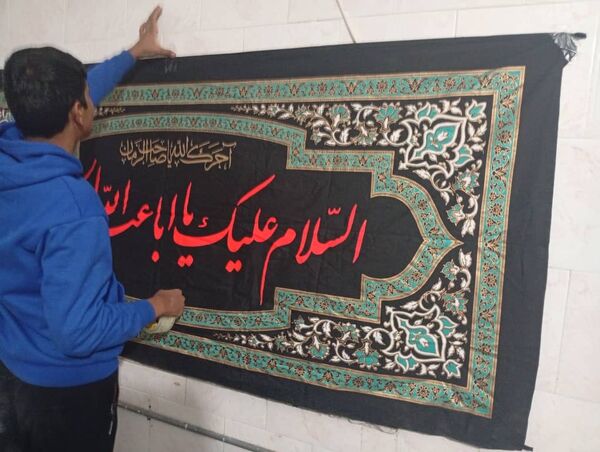 آجرک الله یا صاحب الزمان
السّلام علیک یا اباعبدالله